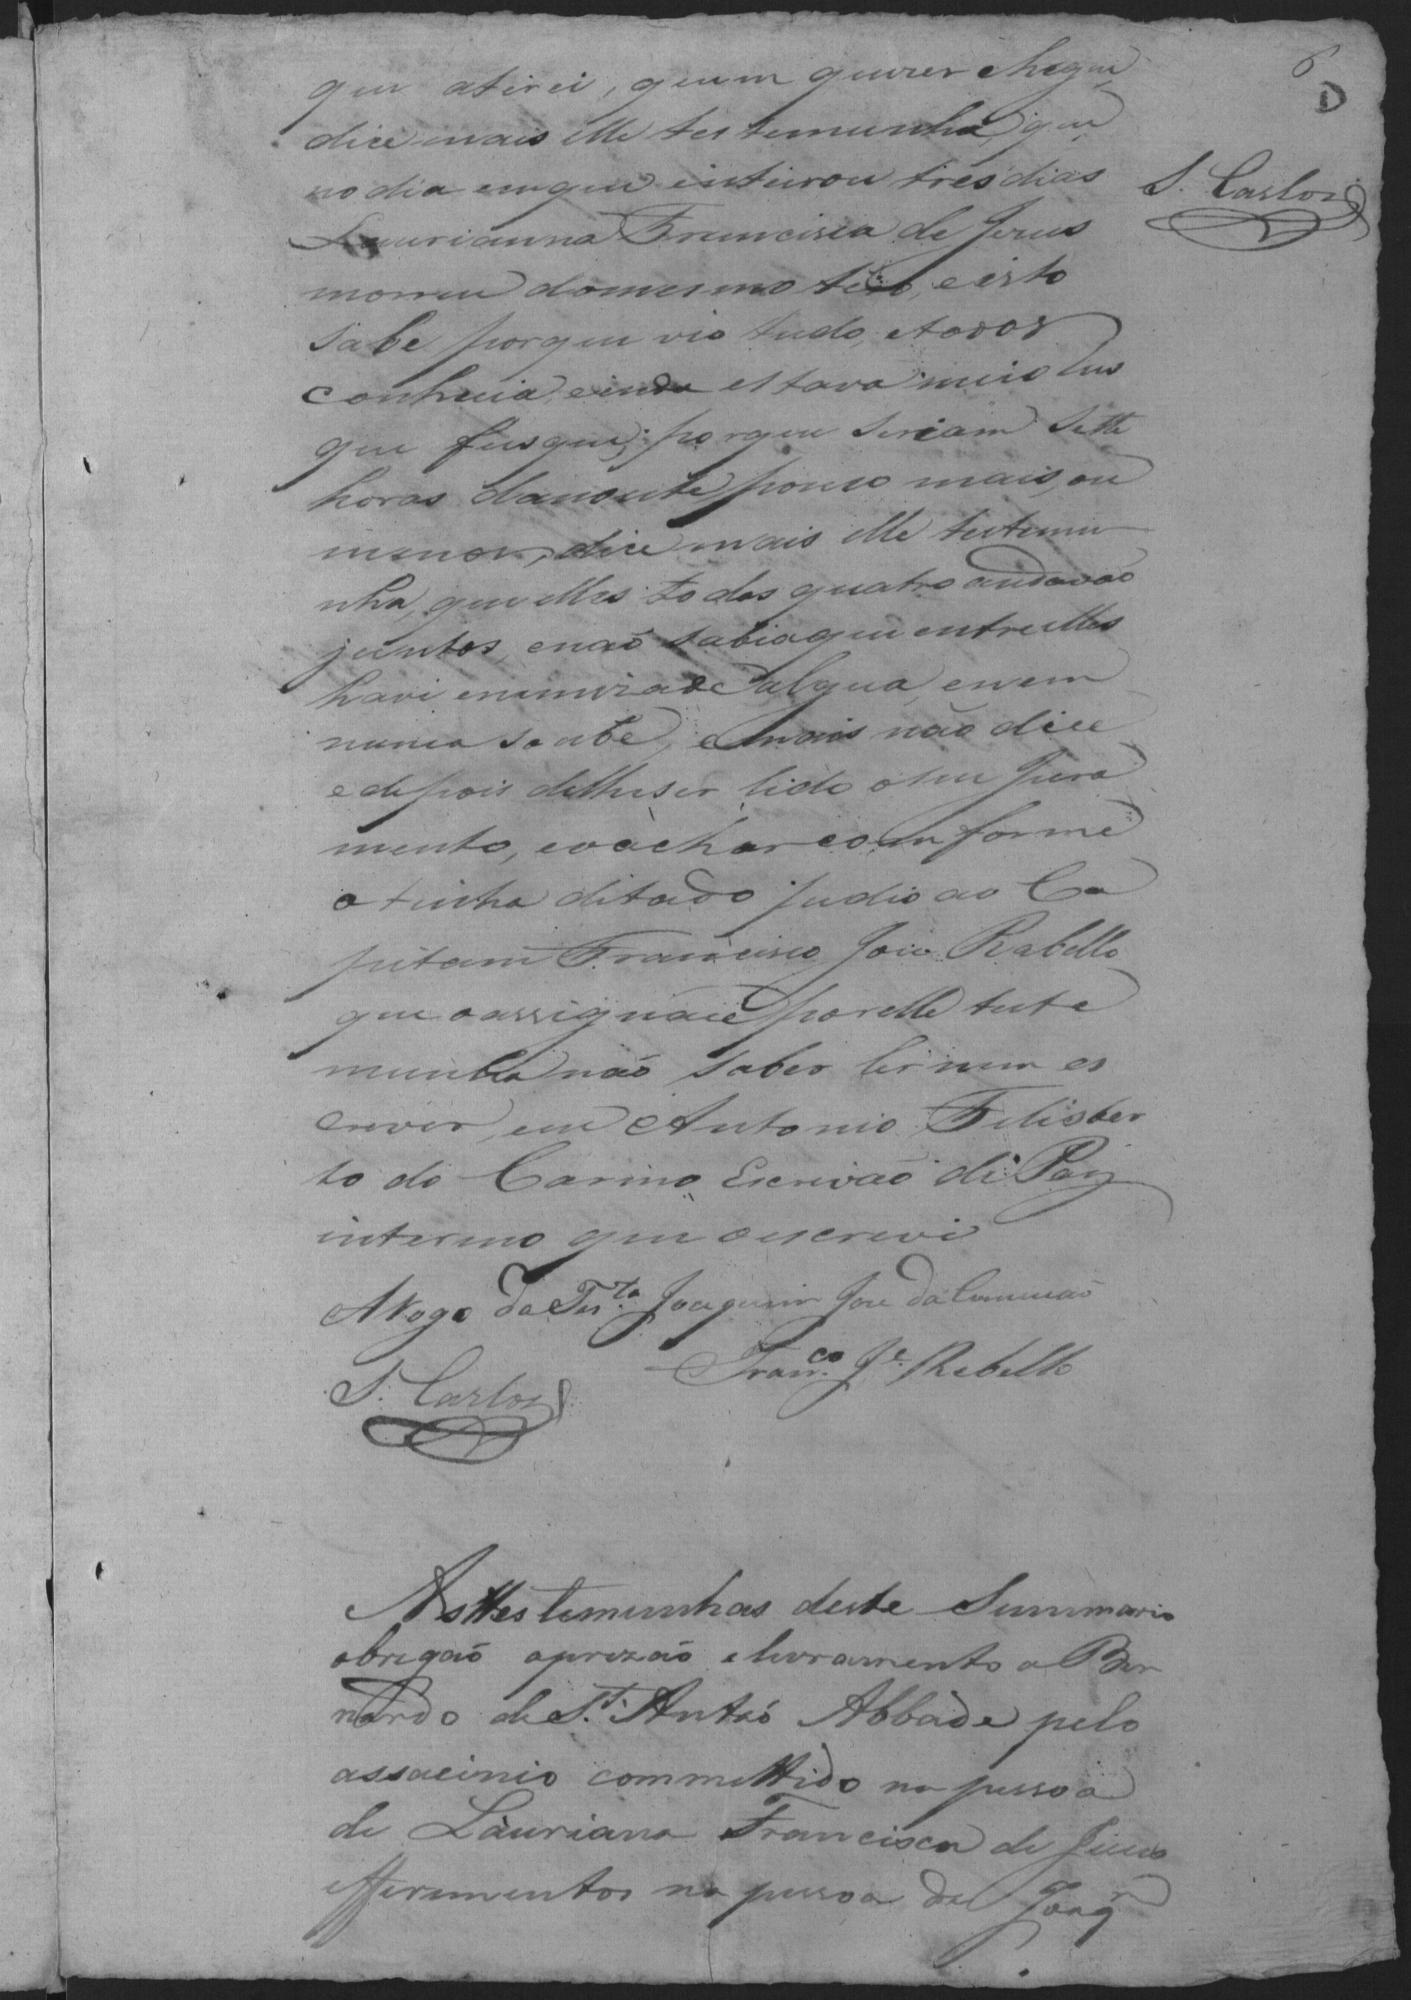 6
que atirei, quem quizer chegue
dice mais elle testemunha, que
no dia em que enteirou tres dias
S. Carlos
Laurianna Francisca de Jesus
morreu do mesmo tiro, e isto
sabe porque vio tudo, e todos
conhecia, e inda estava meio lus
que fusque; porque seriam sette
horas da noute pouco mais, ou
menos, dice mais elle testemu
nha, que elles todos quatro andavaõ
juntos, e naõ sabia que entre elles
havi enemizade algua, e nem
nunca soube, e mais não dice
e depois de lhe ser lido o seu jura
mento, e o achar comforme
o tinha ditado pedio ao Ca
pitam Francisco Joze Rabello
que o assignace por elle teste
munha naõ saber ler nem es
crever, eu Antonio Felisber
to do Carmo Escrivaõ de Paz
interino que o escrevi
A Rogo da Tes.ta Joaquim Joze da Conceicaõ
Fran.co Je. Rebello
S. Carlos
As testemunhas deste Summario
obrigaõ a prizaõ e livramento a Ber
nardo de S.t Antaõ Abbade pelo
assacinio committido na pessoa
de Lauriana Francisca de Jesus
e ferimentos na pessoa de Joaq.m